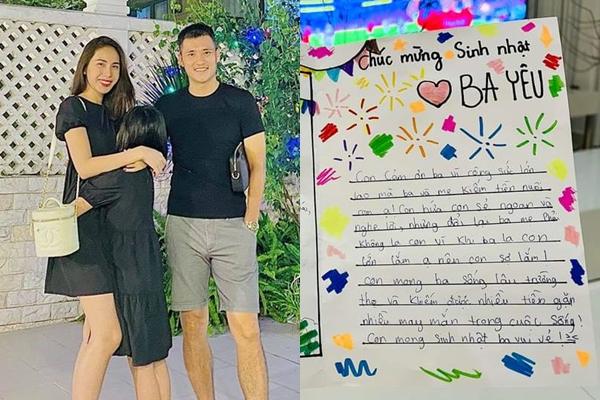 Chúc mừng Sinh nhật
BA YÊU
Con Cảm ơn ba vì công sức lớn
lao mà ba và mẹ kiếm tiền nuôi
con ạ! Con hứa con sẽ ngoan và
nghe lời, nhưng đổi lại ba mẹ phải
không la con vì khi ba la con
lớn lắm ạ nên con sợ lắm!
con mong ba sống lâu trường
thọ và kiếm được nhiều tiền gặp
nhiều may mắn trong cuộc sống!
Con mong sinh nhật ba vui vẻ!